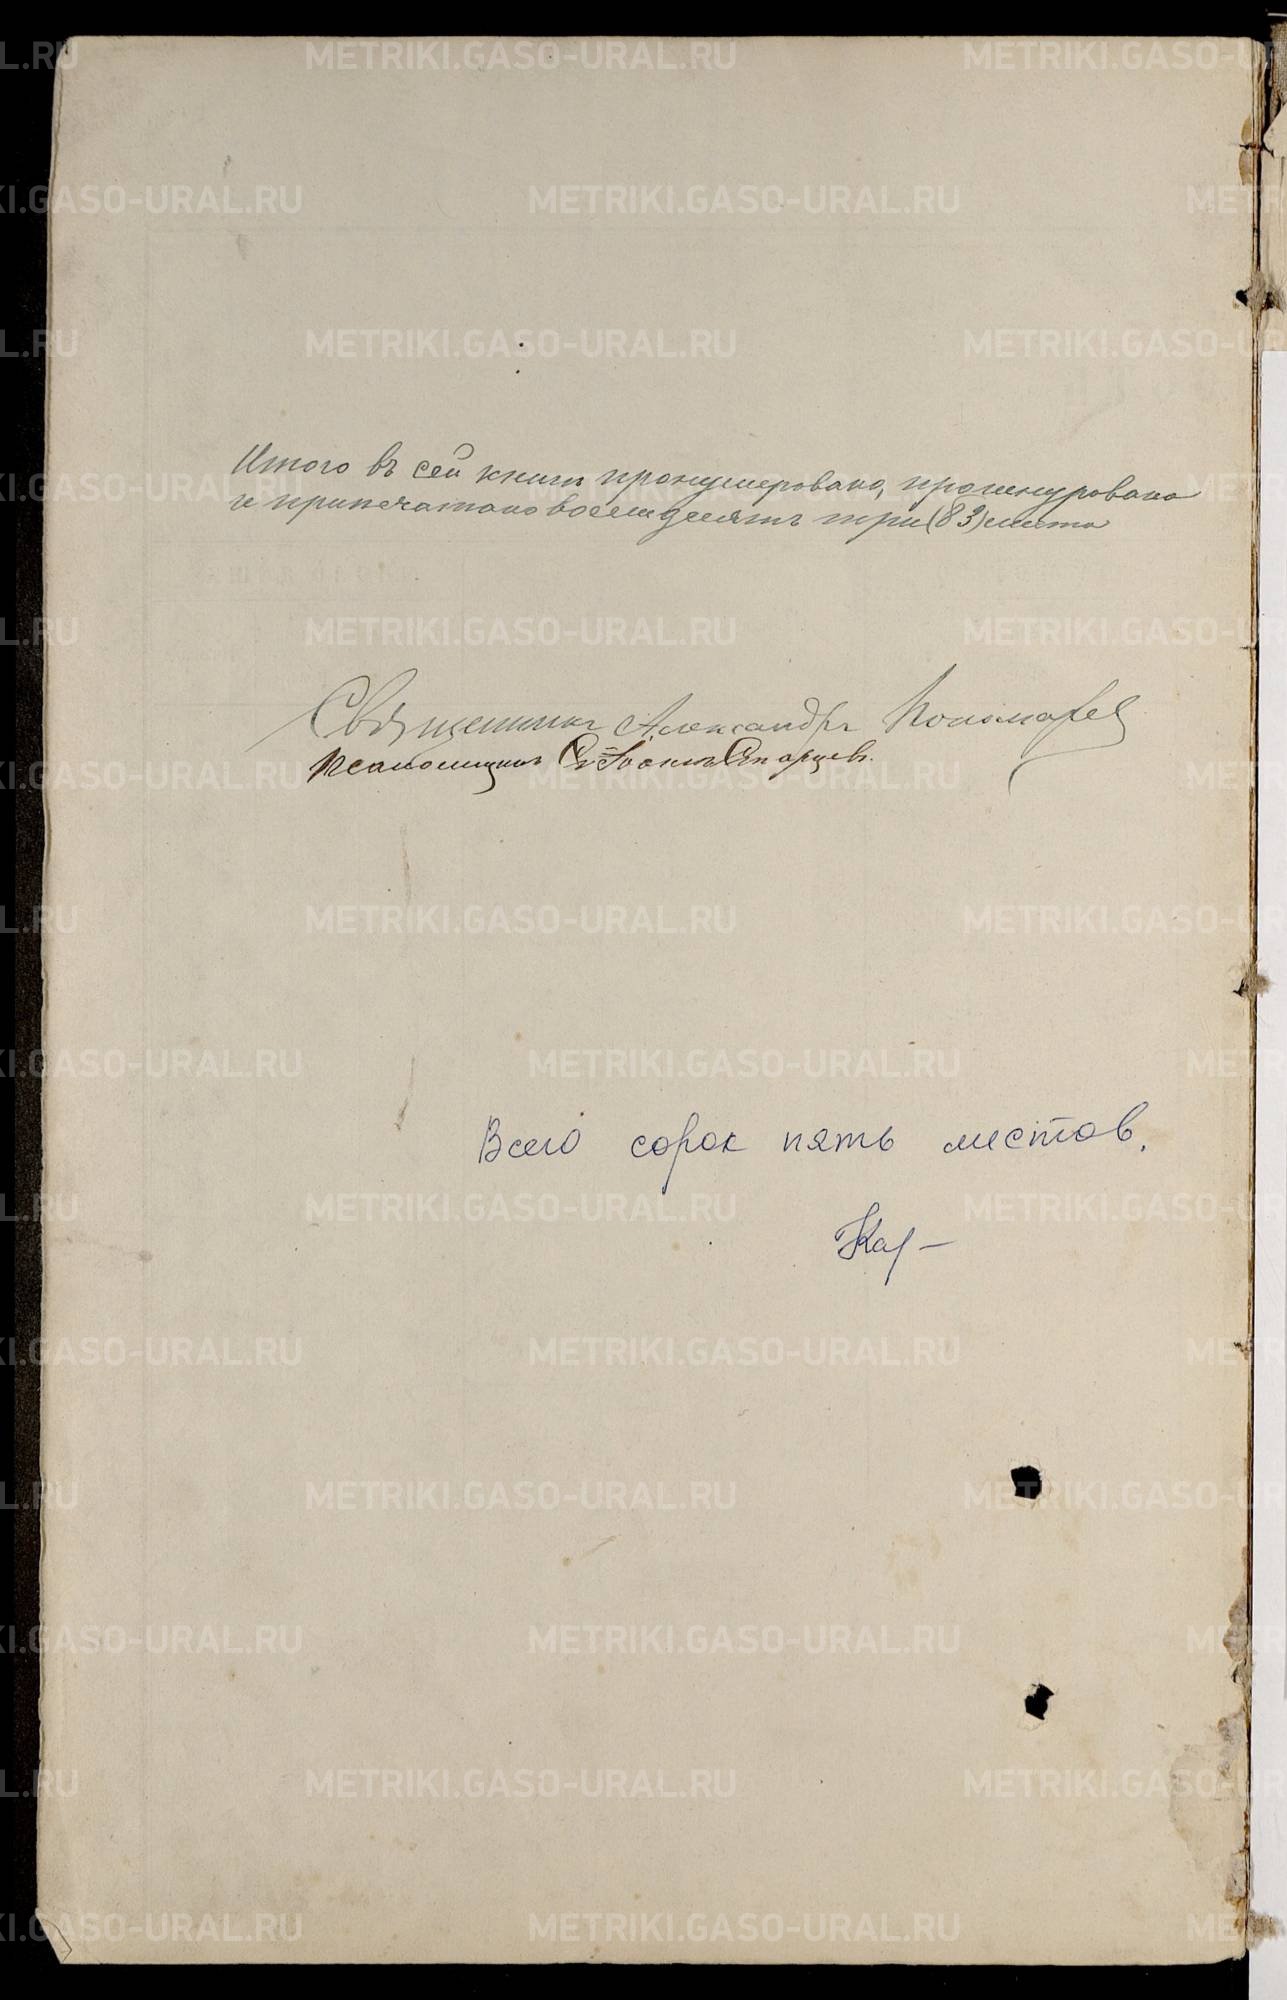 Итого въ сей книги пронумеровано, прошнуровано
и припечатано восемдесятъ три (83) листа
Священникъ Александръ Пономарев
Псаломщикъ Іоаннъ Старцевъ.
Всего сорок пять листов.
METRIKI.GASO-URAL.RU